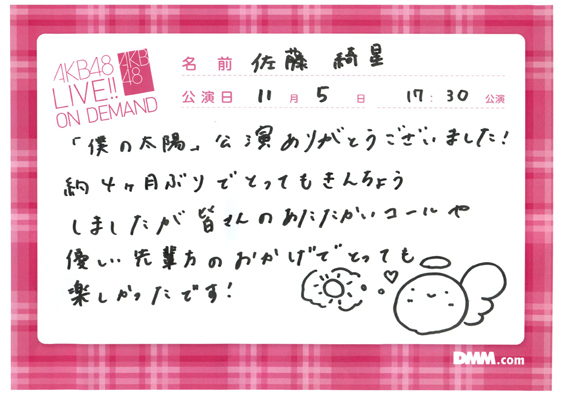 AKB48
LIVE!!
ON DEMAND
AKB
48
名前 佐藤 綺星
公演日 11月5日 17:30公演
「僕の太陽」公演ありがとうございました!
約4ヶ月ぶりでとってもきんちょう
しましたが皆さんのあたたかいコールや
優しい先輩方のおかげでとっても
楽しかったです!
DMM.com